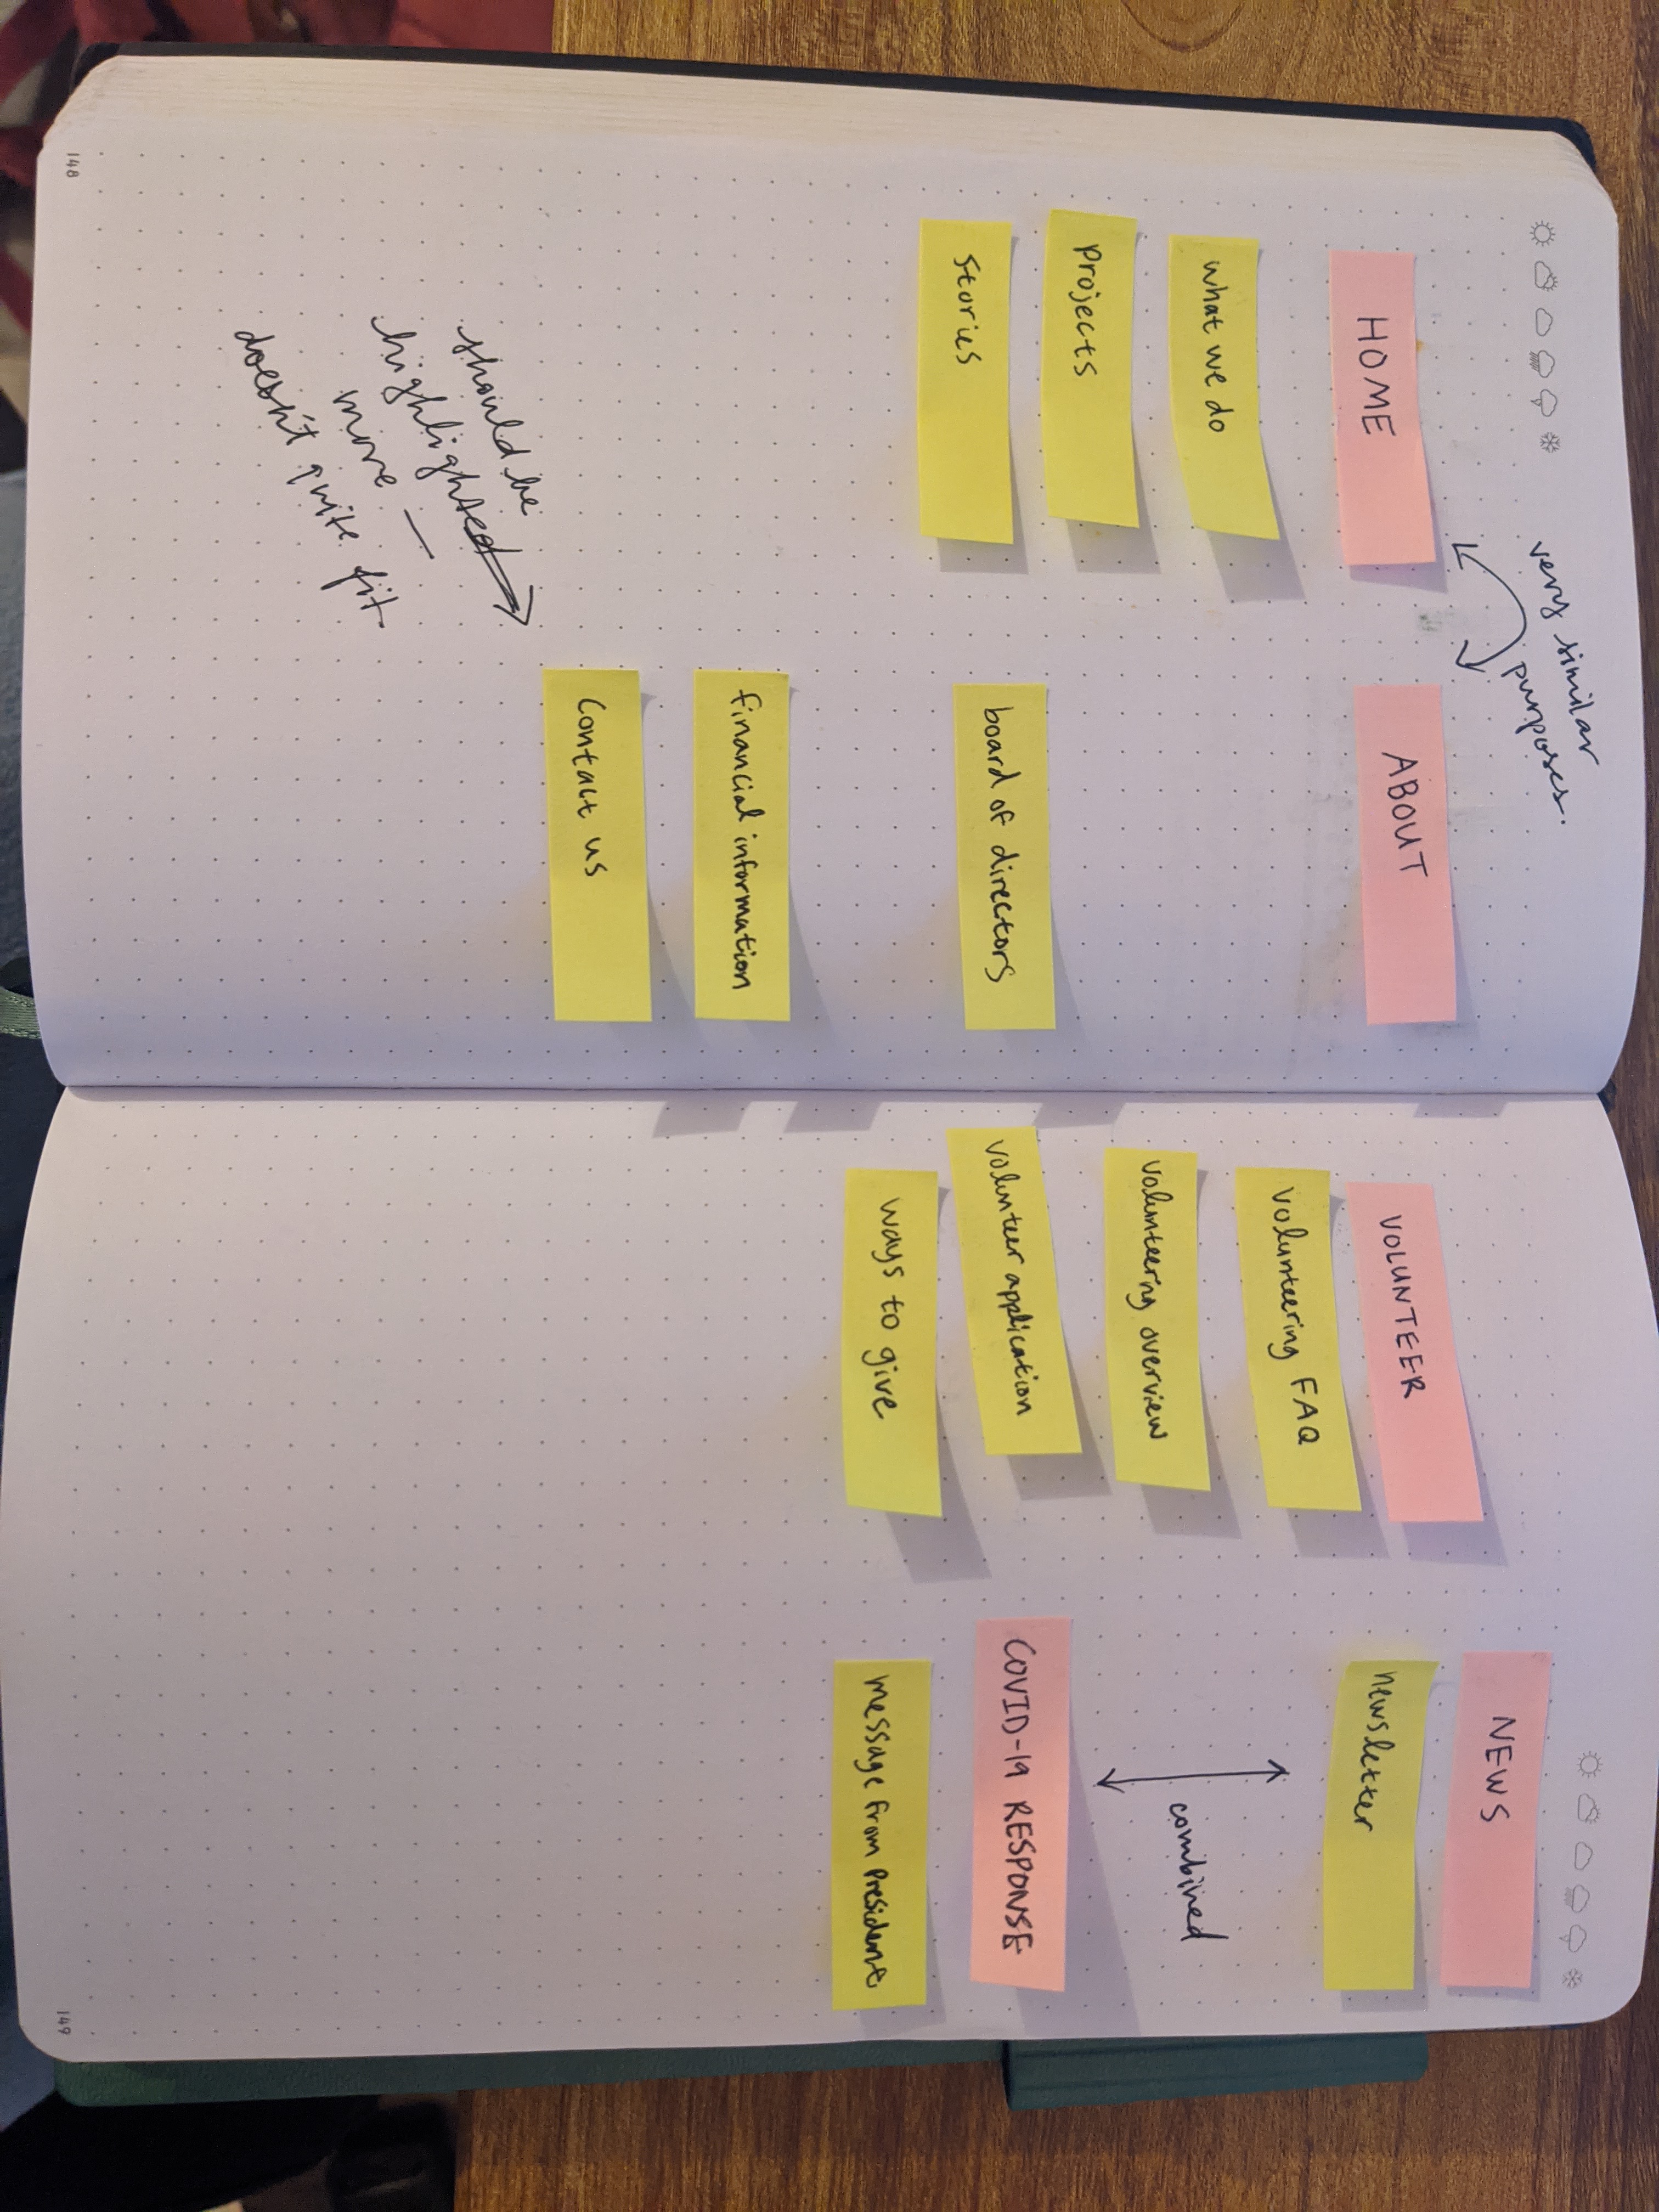 very similar
purposes.
HOME
what we do
projects
stories
ABOUT
board of directors
financial information
contact us
should be
highlighted
more —
doesn't quite fit
148
VOLUNTEER
volunteering FAQ
volunteering overview
volunteer application
ways to give
NEWS
newsletter
combined
COVID-19 RESPONSE
message from president
149